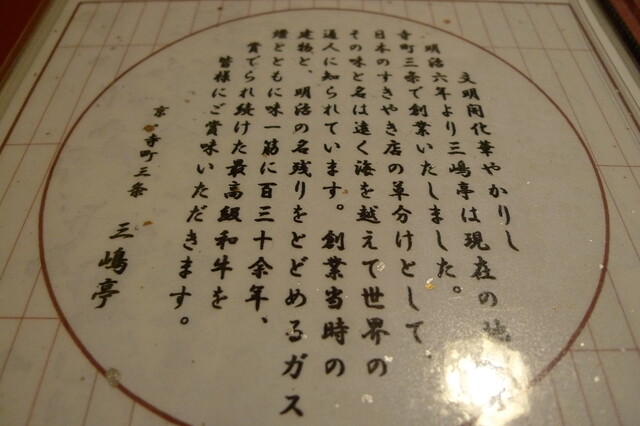 文明開化華やかりし
明治六年より三嶋亭は現在の地
寺町三条で創業いたしました。
日本のすきやき店の草分けとして、
その味と名は遠く海を越えて世界の
通人に知られています。創業当時の
建物と、明治の名残りをとどめるガス
燈とともに味一筋に百三十余年、
賞でられ続けた最高級和牛を
皆様にご賞味いただきます。
京 寺町三条 三嶋亭